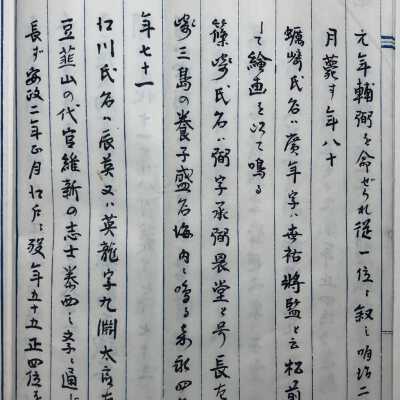 元年輔弼を命ぜられ従一位に叙し明治二
月薨す年八十
蠣崎氏名ハ廣年字ハ世祜将監と云松前
して繪画を以て鳴る
篠崎氏名ハ弼字承弼畏堂と号長左
崎三島の養子盛名海内に鳴る嘉永四
年七十一
江川氏名ハ辰英又ハ英龍字九淵太郎左
豆韮山の代官維新の志士泰西之学に通し
長ず安政二年正月江戸に歿年五十五正四位を